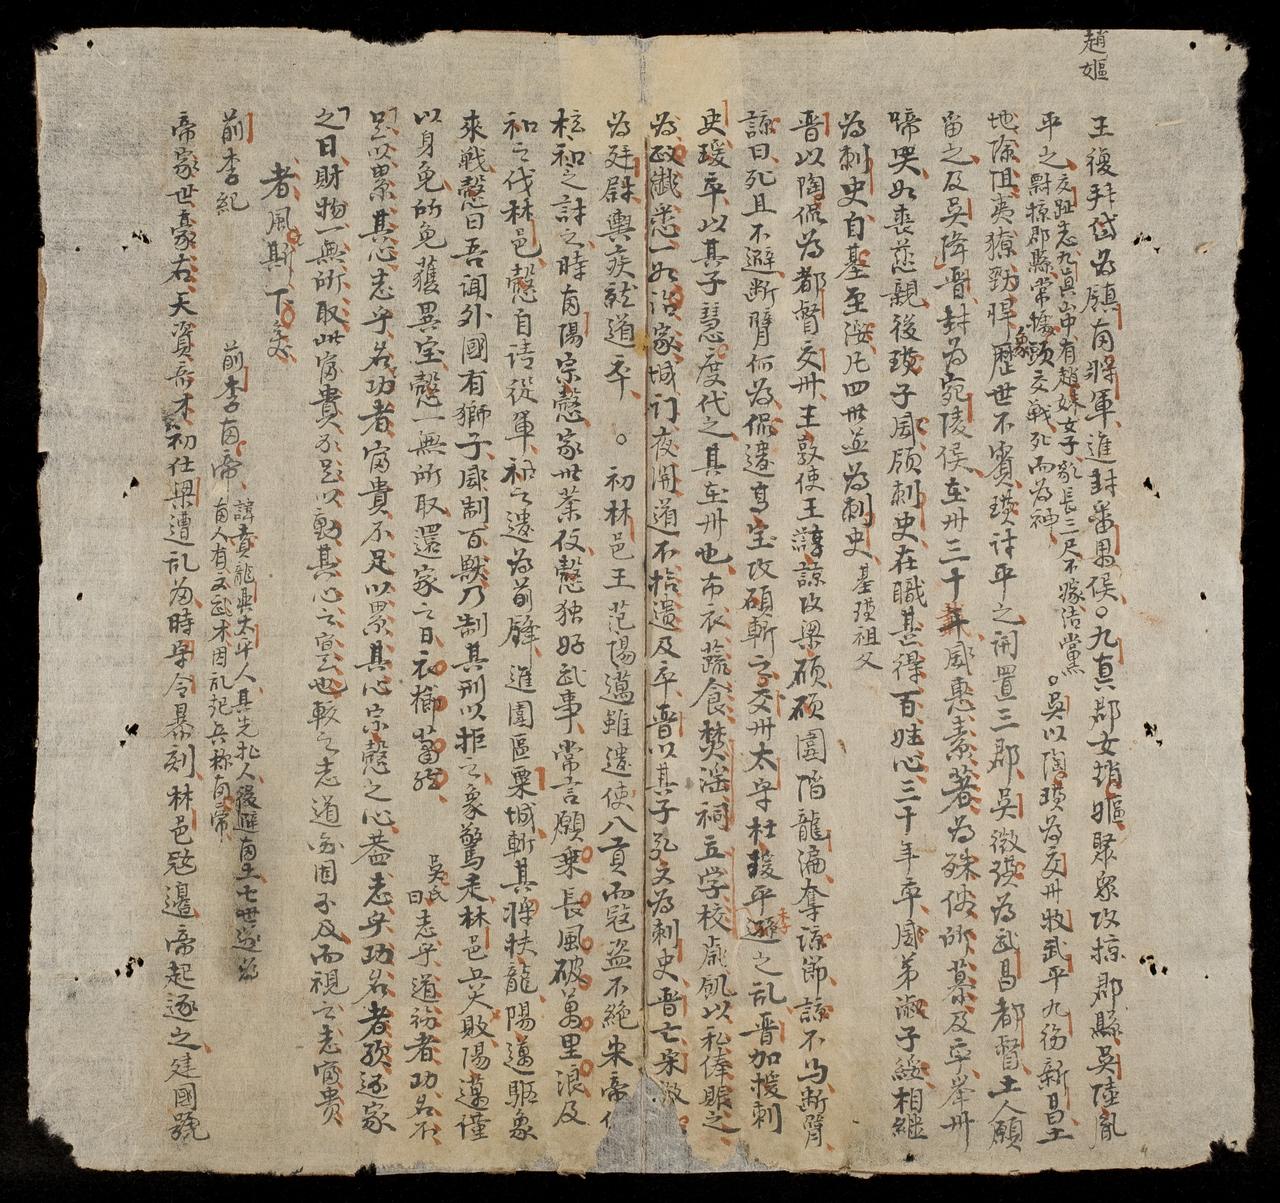 趙嫗
王復拜岱為鎮南將軍進封番禺侯○九真郡女趙嫗聚眾攻掠郡縣吳陸胤
平之交趾志九真山中有趙妹女子乳長三尺不嫁結黨
剽掠郡縣常據象頭交戰死而為神○吳以陶璜為交州牧武平九德新昌土
地險阻夷獠勁悍歷世不賓璜討平之開置三郡吳徵璜為武昌都督土人願
留之及吳降晉封為宛陵侯在州三十年威惠素著為殊俗所慕及卒舉州
啼哭如喪慈親後璜子威領刺史在職甚得百姓心三十年卒威弟淑子綏相繼
為刺史自基至綏凡四世並為刺史基璜祖父
晉以陶侃為都督交州王敦使王諒攻梁碩碩圍
龍編奪諒節諒不與斷臂
諒曰死且不避斷臂何為侃遣高宝攻碩斬之交州太守杜瑗平遜之乱晉加授刺
史瑗卒以其子慧度代之其在州也布衣蔬食禁淫祠立学校歲飢以私俸賑之
為政纖悉一如治家城门夜開道不拾遺及卒晉以其子弘文為刺史晉亡宋徵
為廷尉輿疾就道卒○初林邑王范陽邁雖遣使入貢而寇盜不絕宋帝使
檀和之討之時南陽宗慤家世業儒慤独好武事常言願乘長風破萬里浪及
和之伐林邑慤自請從軍和之遣為前鋒進圍區粟城斬其將扶龍陽邁駆象
來戰慤曰吾闻外國有獅子威制百獸乃制其形以拒之象驚走林邑兵大敗陽邁僅
以身免所免獲異宝慤一無所取還家之日衣櫛蕭然吳氏曰志乎道德者功名不
足以累其心志乎名功者富貴不足以累其心宗慤之心盖志乎功名者故逐家
之日財物一無所取此富貴不足以動其心之實也較之志道亦固不及而視之志富貴
者風斯下矣
前李紀
前李南帝諱賁龍興太平人其先北人後避南土七世遂為
南人有文武才因乱起兵称南帝
帝家世豪右天資奇才初仕梁遭乱為時守令暴刻林邑寇邊帝起逐之建國號